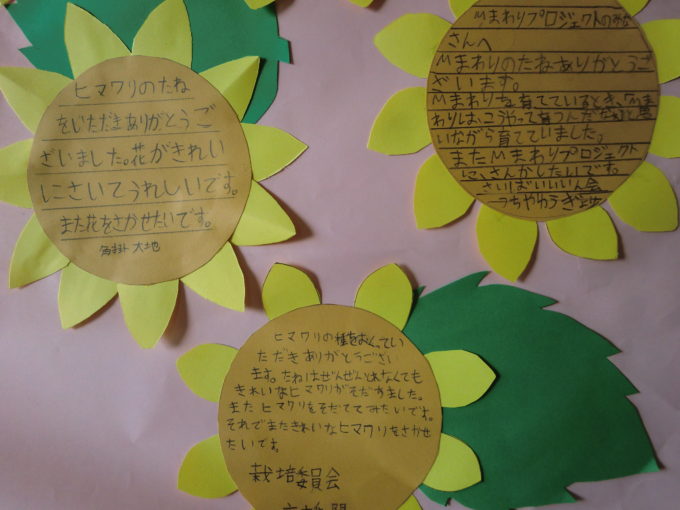 ヒマワリのたね
をいただきありがとうご
ざいました。花がきれい
にさいてうれしいです。
また花をさかせたいです。
大地
ひまわりプロジェクトのみな
さんへ
ひまわりのたねありがとうご
ざいます。
ひまわりを育てているとき、「ひま
わりは、こうやって育つんだな」と思
いながら育てていました。
またひまわりプロジェクト
に、さんかしたいです。
さいばいいいん会
ヒマワリの種をおくってい
ただきありがとうござい
ます。たねはぜんぜんとれなくても
きれいなヒマワリがそだちました。
またヒマワリをそだててみたいです。
それでまたきれいなヒマワリをさかせ
たいです。
栽培委員会